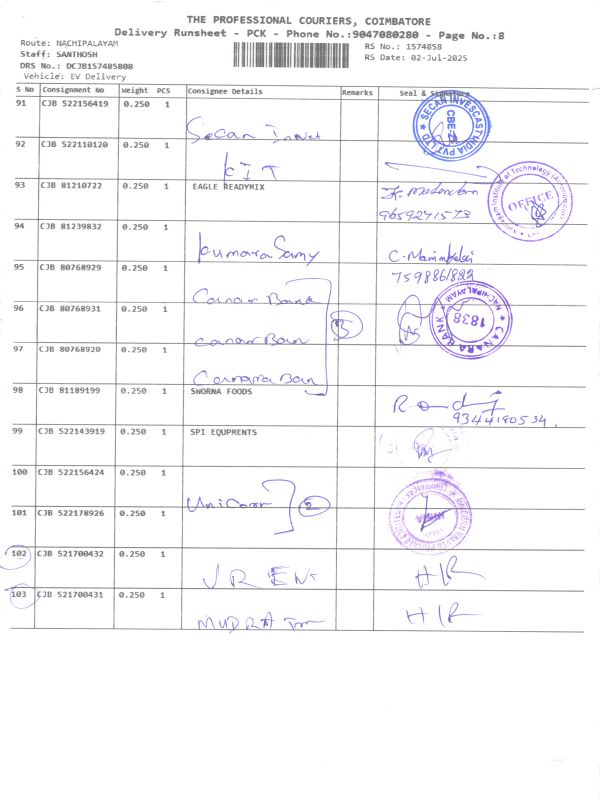 THE PROFESSIONAL COURIERS, COIMBATORE
Delivery Runsheet - PCK - Phone No.:9047080280 - Page No.:8
Route: NACHIPALAYAM RS No.: 1574858
Staff: SANTHOSH RS Date: 02-Jul-2025
DRS No.: DCJB157485808
Vehicle: EV Delivery
S No Consignment No Weight PCS Consignee Details Remarks Seal & Signature
91 CJB 522156419 0.250 1
Secan Invest
SECAN INVESCAST INDIA PVT LTD
CBE-21
92 CJB 522110120 0.250 1
KIT
93 CJB 81210722 0.250 1 EAGLE READYMIX
9659271573
Institute of Technology
OFFICE
94 CJB 81239832 0.250 1
Kumara Samy
7598861822
95 CJB 80768929 0.250 1
Canar Bank
96 CJB 80768931 0.250 1
canar Ban
3
CANARA BANK
NACHIPALAYAM
1838
97 CJB 80768920 0.250 1
Canara Ban
98 CJB 81189199 0.250 1 SWORNA FOODS
9344180534.
99 CJB 522143919 0.250 1 SPI EQUPMENTS
100 CJB 522156424 0.250 1
Unicorr
2
101 CJB 522178926 0.250 1
102 CJB 521700432 0.250 1
103 CJB 521700431 0.250 1
MUDRA